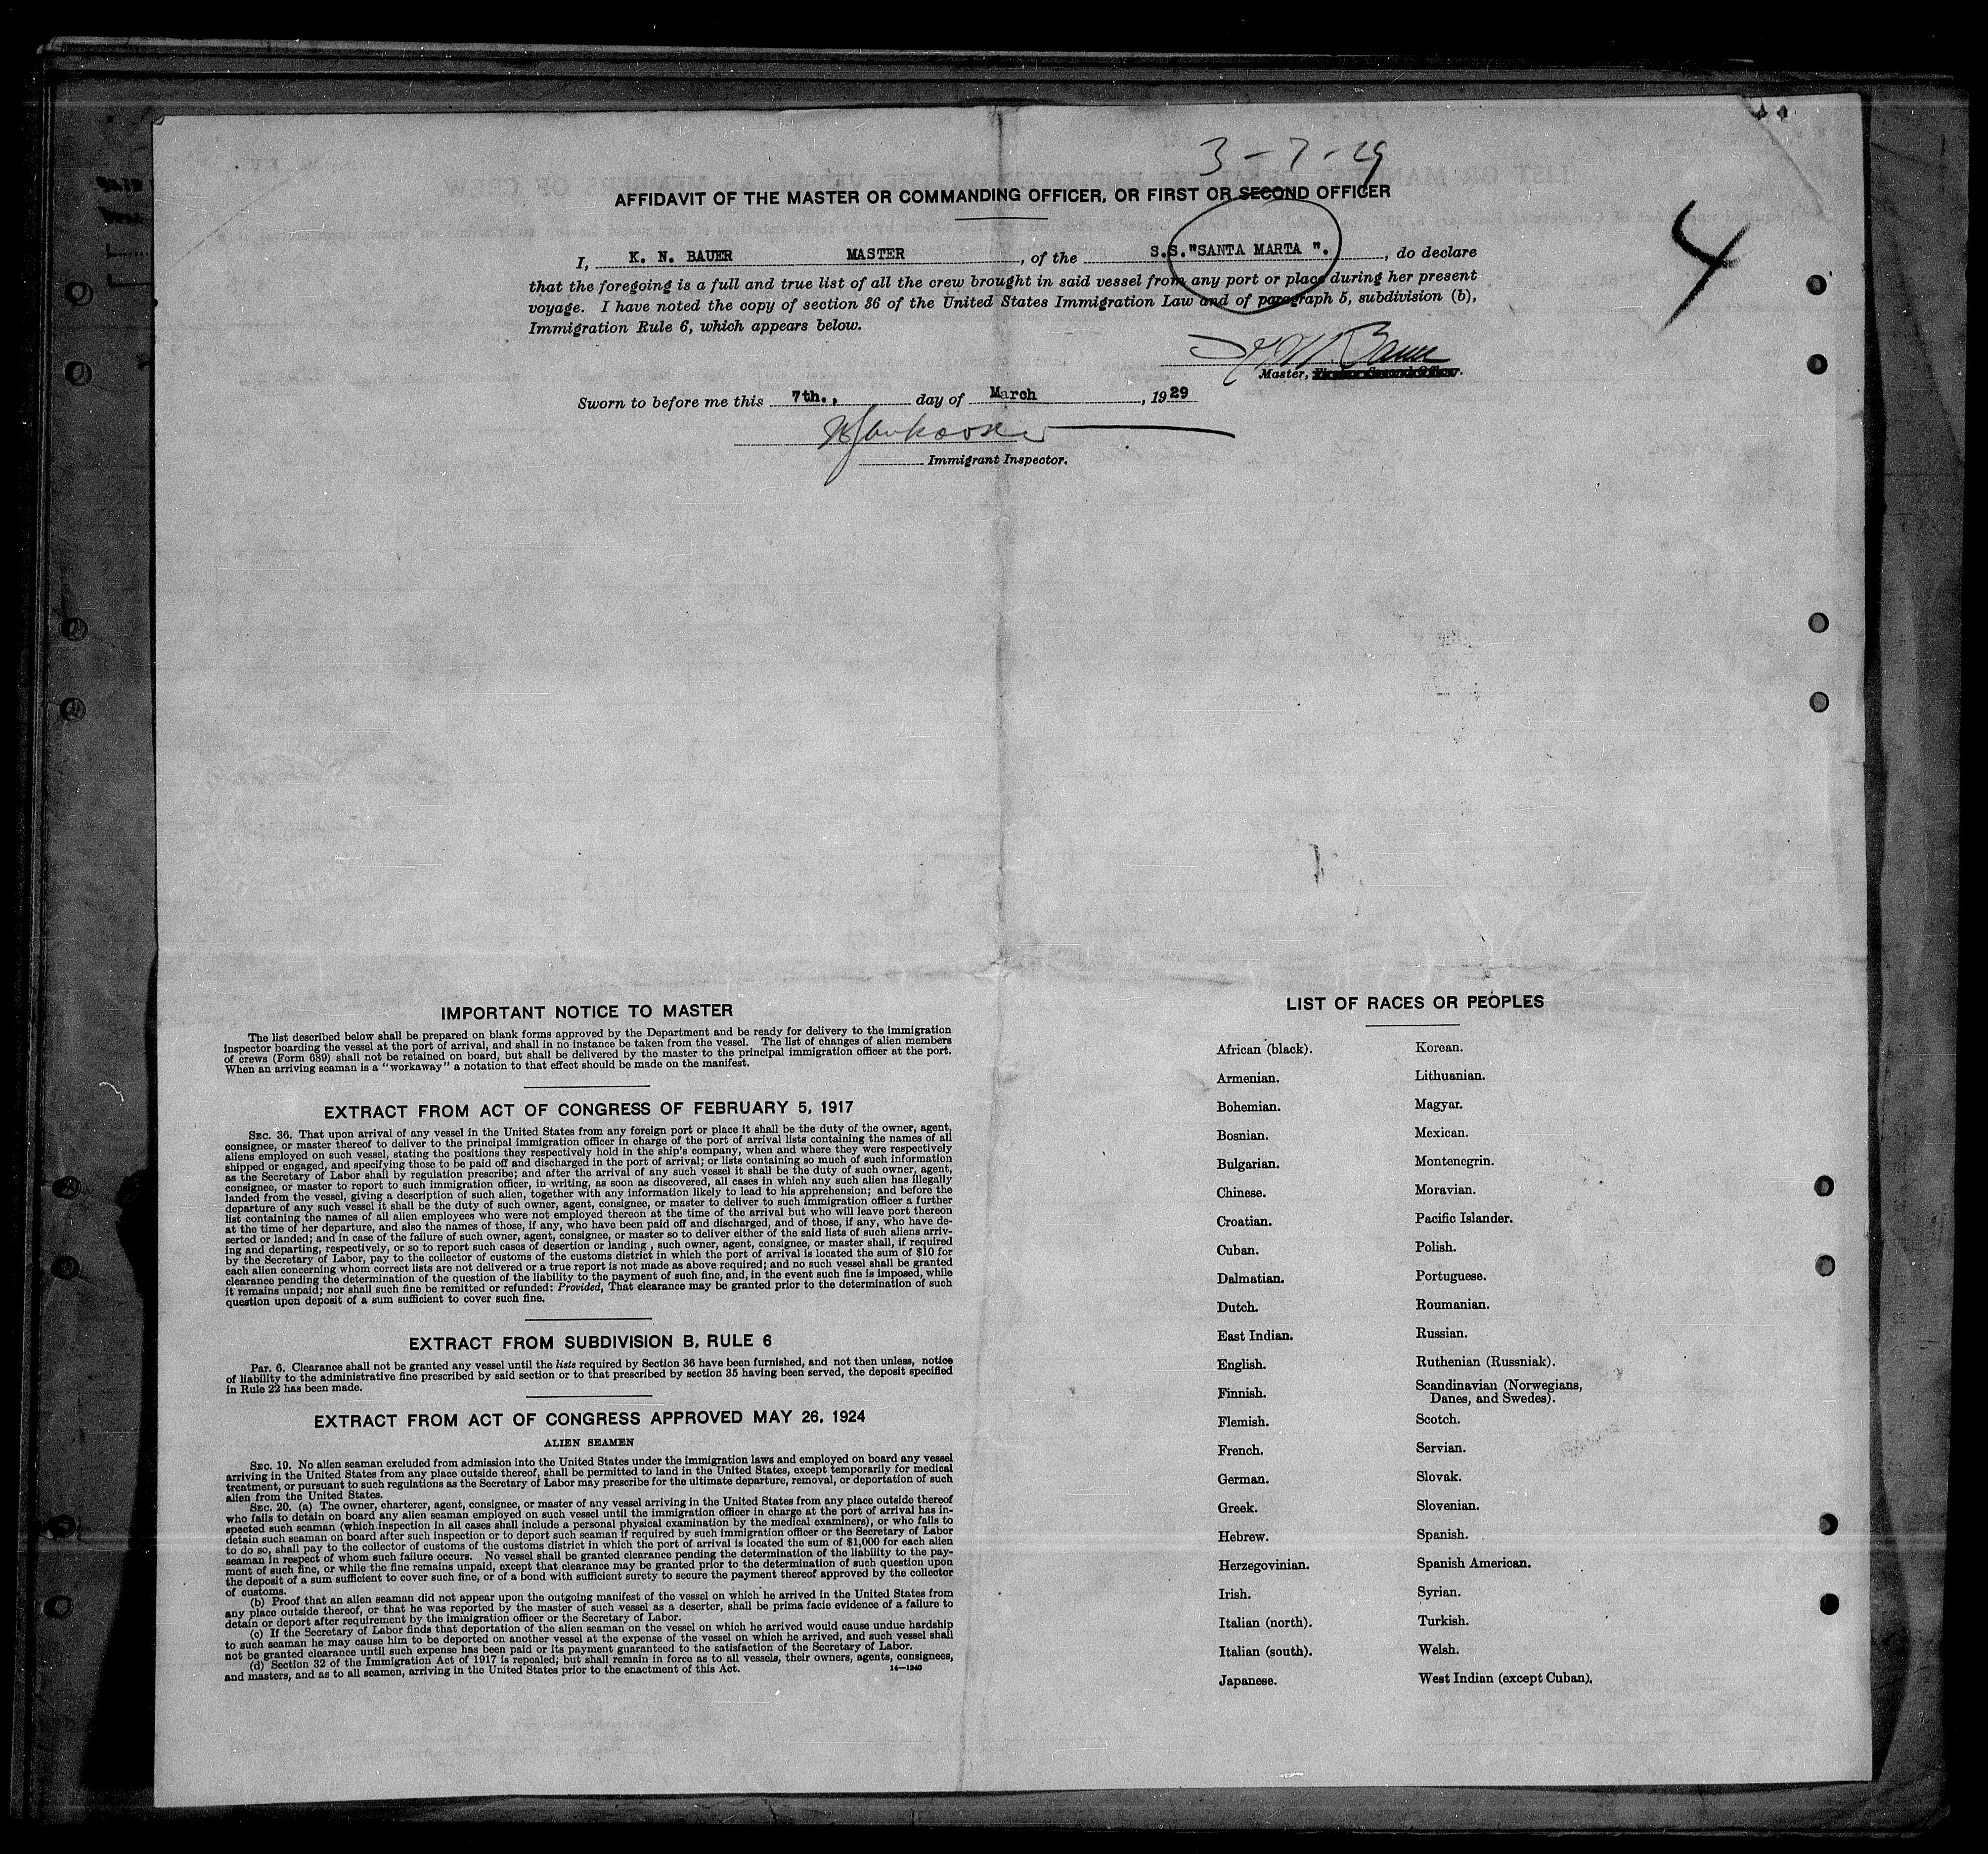 3-7-29
AFFIDAVIT OF THE MASTER OR COMMANDING OFFICER, OR FIRST OR SECOND OFFICER
4
I, K. N. BAUER MASTER, of the S.S."SANTA MARTA "., do declare
that the foregoing is a full and true list of all the crew brought in said vessel from any port or place during her present
voyage. I have noted the copy of section 36 of the United States Immigration Law and of paragraph 5, subdivision (b),
Immigration Rule 6, which appears below.
K. N. Bauer
Master, First or Second Officer.
Sworn to before me this 7th., day of March, 1929
Immigrant Inspector.
IMPORTANT NOTICE TO MASTER
The list described below shall be prepared on blank forms approved by the Department and be ready for delivery to the immigration
inspector boarding the vessel at the port of arrival, and shall in no instance be taken from the vessel. The list of changes of alien members
of crews (Form 689) shall not be retained on board, but shall be delivered by the master to the principal immigration officer at the port.
When an arriving seaman is a "workaway" a notation to that effect should be made on the manifest.
EXTRACT FROM ACT OF CONGRESS OF FEBRUARY 5, 1917
SEC. 36. That upon arrival of any vessel in the United States from any foreign port or place it shall be the duty of the owner, agent,
consignee, or master thereof to deliver to the principal immigration officer in charge of the port of arrival lists containing the names of all
aliens employed on such vessel, stating the positions they respectively hold in the ship's company, when and where they were respectively
shipped or engaged, and specifying those to be paid off and discharged in the port of arrival; or lists containing so much of such information
as the Secretary of Labor shall by regulation prescribe; and after the arrival of any such vessel it shall be the duty of such owner, agent,
consignee, or master to report to such immigration officer, in writing, as soon as discovered, all cases in which any such alien has illegally
landed from the vessel, giving a description of such alien, together with any information likely to lead to his apprehension; and before the
departure of any such vessel it shall be the duty of such owner, agent, consignee, or master to deliver to such immigration officer a further
list containing the names of all alien employees who were not employed thereon at the time of the arrival but who will leave port thereon
at the time of her departure, and also the names of those, if any, who have been paid off and discharged, and of those, if any, who have de-
serted or landed; and in case of the failure of such owner, agent, consignee, or master so to deliver either of the said lists of such aliens arriv-
ing and departing, respectively, or so to report such cases of desertion or landing , such owner, agent, consignee, or master shall, if required
by the Secretary of Labor, pay to the collector of customs of the customs district in which the port of arrival is located the sum of $10 for
each alien concerning whom correct lists are not delivered or a true report is not made as above required; and no such vessel shall be granted
clearance pending the determination of the question of the liability to the payment of such fine, and, in the event such fine is imposed, while
it remains unpaid; nor shall such fine be remitted or refunded: Provided, That clearance may be granted prior to the determination of such
question upon deposit of a sum sufficient to cover such fine.
EXTRACT FROM SUBDIVISION B, RULE 6
Par. 6. Clearance shall not be granted any vessel until the lists required by Section 36 have been furnished, and not then unless, notice
of liability to the administrative fine prescribed by said section or to that prescribed by section 35 having been served, the deposit specified
in Rule 22 has been made.
EXTRACT FROM ACT OF CONGRESS APPROVED MAY 26, 1924
ALIEN SEAMEN
SEC. 19. No alien seaman excluded from admission into the United States under the immigration laws and employed on board any vessel
arriving in the United States from any place outside thereof, shall be permitted to land in the United States, except temporarily for medical
treatment, or pursuant to such regulations as the Secretary of Labor may prescribe for the ultimate departure, removal, or deportation of such
alien from the United States.
SEC. 20. (a) The owner, charterer, agent, consignee, or master of any vessel arriving in the United States from any place outside thereof
who fails to detain on board any alien seaman employed on such vessel until the immigration officer in charge at the port of arrival has in-
spected such seaman (which inspection in all cases shall include a personal physical examination by the medical examiners), or who fails to
detain such seaman on board after such inspection or to deport such seaman if required by such immigration officer or the Secretary of Labor
to do so, shall pay to the collector of customs of the customs district in which the port of arrival is located the sum of $1,000 for each alien
seaman in respect of whom such failure occurs. No vessel shall be granted clearance pending the determination of the liability to the pay-
ment of such fine, or while the fine remains unpaid, except that clearance may be granted prior to the determination of such question upon
the deposit of a sum sufficient to cover such fine, or of a bond with sufficient surety to secure the payment thereof approved by the collector
of customs.
(b) Proof that an alien seaman did not appear upon the outgoing manifest of the vessel on which he arrived in the United States from
any place outside thereof, or that he was reported by the master of such vessel as a deserter, shall be prima facie evidence of a failure to
detain or deport after requirement by the immigration officer or the Secretary of Labor.
(c) If the Secretary of Labor finds that deportation of the alien seaman on the vessel on which he arrived would cause undue hardship
to such seaman he may cause him to be deported on another vessel at the expense of the vessel on which he arrived, and such vessel shall
not be granted clearance until such expense has been paid or its payment guaranteed to the satisfaction of the Secretary of Labor.
(d) Section 32 of the Immigration Act of 1917 is repealed; but shall remain in force as to all vessels, their owners, agents, consignees,
and masters, and as to all seamen, arriving in the United States prior to the enactment of this Act.
14—1240
LIST OF RACES OR PEOPLES
African (black).
Armenian.
Bohemian.
Bosnian.
Bulgarian.
Chinese.
Croatian.
Cuban.
Dalmatian.
Dutch.
East Indian.
English.
Finnish.
Flemish.
French.
German.
Greek.
Hebrew.
Herzegovinian.
Irish.
Italian (north).
Italian (south).
Japanese.
Korean.
Lithuanian.
Magyar.
Mexican.
Montenegrin.
Moravian.
Pacific Islander.
Polish.
Portuguese.
Roumanian.
Russian.
Ruthenian (Russniak).
Scandinavian (Norwegians,
Danes, and Swedes).
Scotch.
Servian.
Slovak.
Slovenian.
Spanish.
Spanish American.
Syrian.
Turkish.
Welsh.
West Indian (except Cuban).